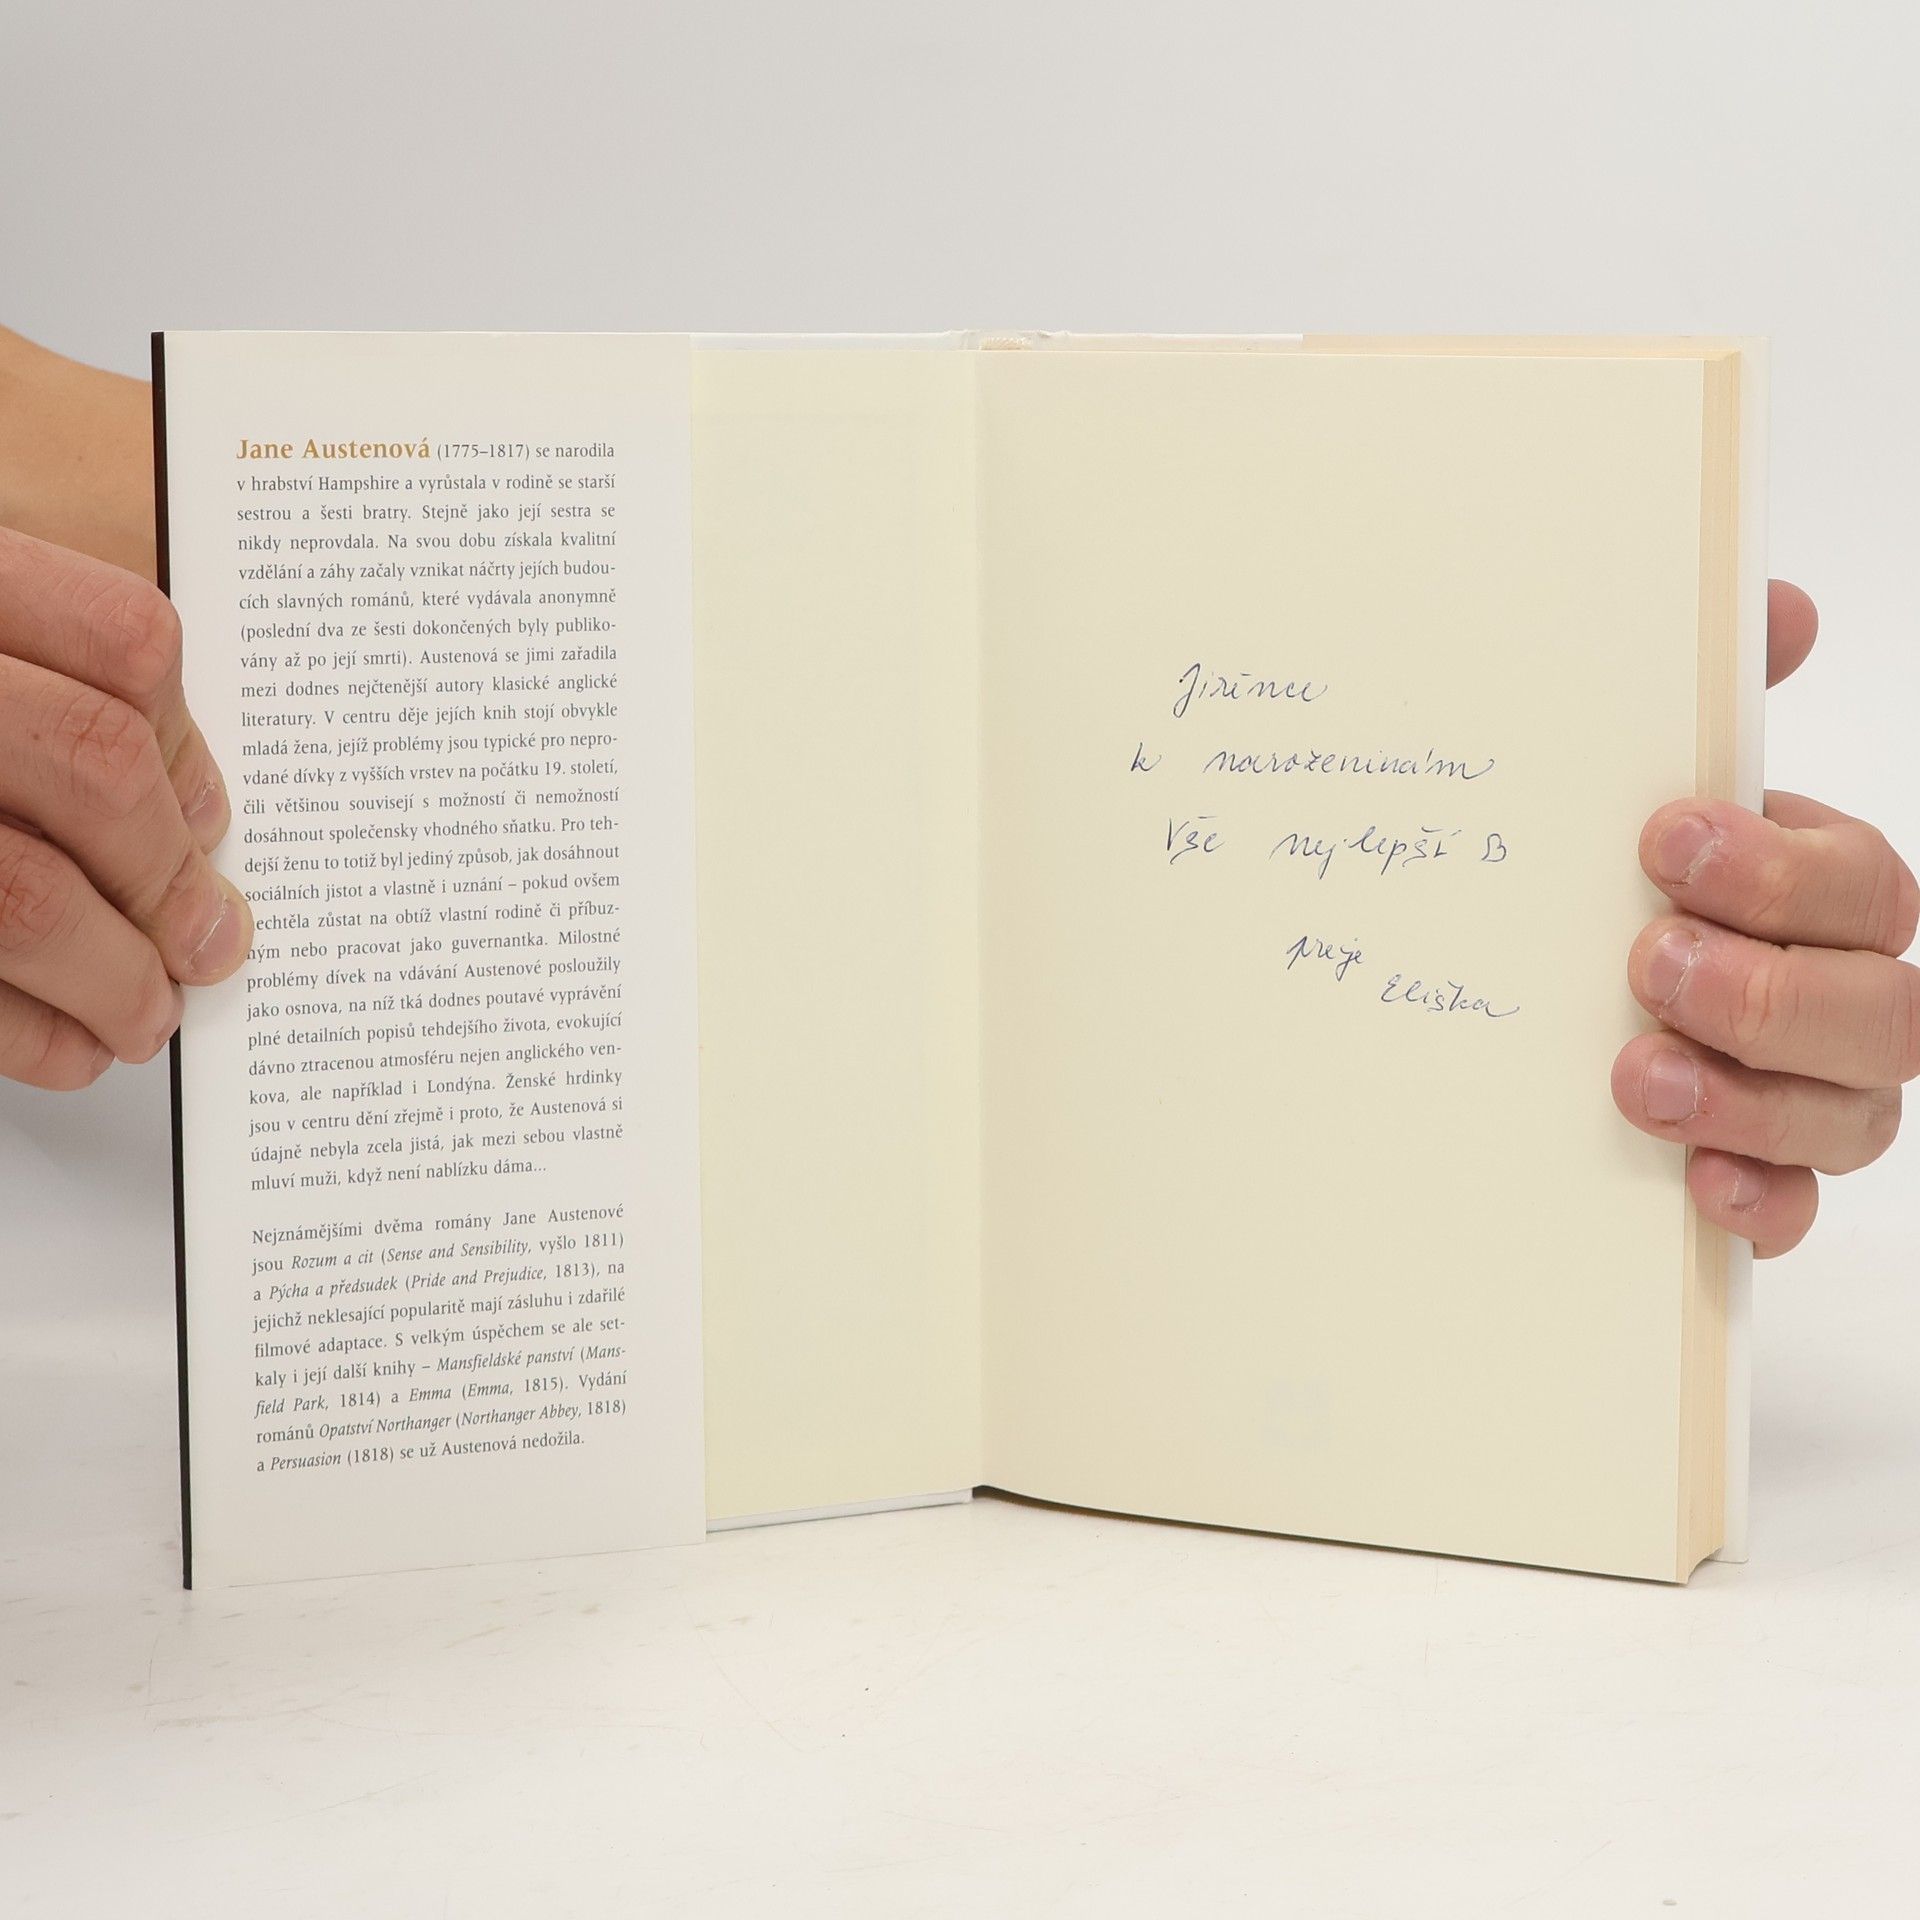 Jane Austenová (1775–1817) se narodila
v hrabství Hampshire a vyrůstala v rodině se starší
sestrou a šesti bratry. Stejně jako její sestra se
nikdy neprovdala. Na svou dobu získala kvalitní
vzdělání a záhy začaly vznikat náčrty jejích budou-
cích slavných románů, které vydávala anonymně
(poslední dva ze šesti dokončených byly publiko-
vány až po její smrti). Austenová se jimi zařadila
mezi dodnes nejčtenější autory klasické anglické
literatury. V centru děje jejích knih stojí obvykle
mladá žena, jejíž problémy jsou typické pro nepro-
vdané dívky z vyšších vrstev na počátku 19. století,
čili většinou souvisejí s možností či nemožností
dosáhnout společensky vhodného sňatku. Pro teh-
dejší ženu to totiž byl jediný způsob, jak dosáhnout
sociálních jistot a vlastně i uznání – pokud ovšem
nechtěla zůstat na obtíž vlastní rodině či příbuz-
ným nebo pracovat jako guvernantka. Milostné
problémy dívek na vdávání Austenové posloužily
jako osnova, na níž tká dodnes poutavé vyprávění
plné detailních popisů tehdejšího života, evokující
dávno ztracenou atmosféru nejen anglického ven-
kova, ale například i Londýna. Ženské hrdinky
jsou v centru dění zřejmě i proto, že Austenová si
údajně nebyla zcela jistá, jak mezi sebou vlastně
mluví muži, když není nablízku dáma...
Nejznámějšími dvěma romány Jane Austenové
jsou Rozum a cit (Sense and Sensibility, vyšlo 1811)
a Pýcha a předsudek (Pride and Prejudice, 1813), na
jejichž neklesající popularitě mají zásluhu i zdařilé
filmové adaptace. S velkým úspěchem se ale set-
kaly i její další knihy – Mansfieldské panství (Mans-
field Park, 1814) a Emma (Emma, 1815). Vydání
románů Opatství Northanger (Northanger Abbey, 1818)
a Persuasion (1818) se už Austenová nedožila.
k narozeninám
Vše nejlepší
přeje
Eliška